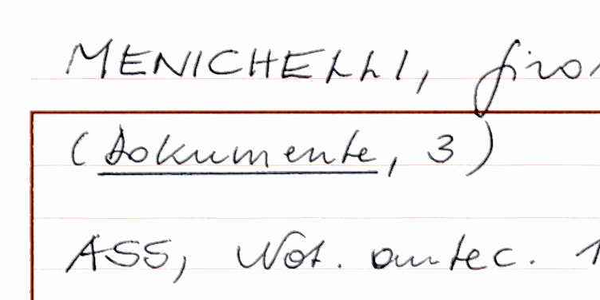 MENICHELLI, giro
(Dokumente, 3)
ASS, Not. antec. 1